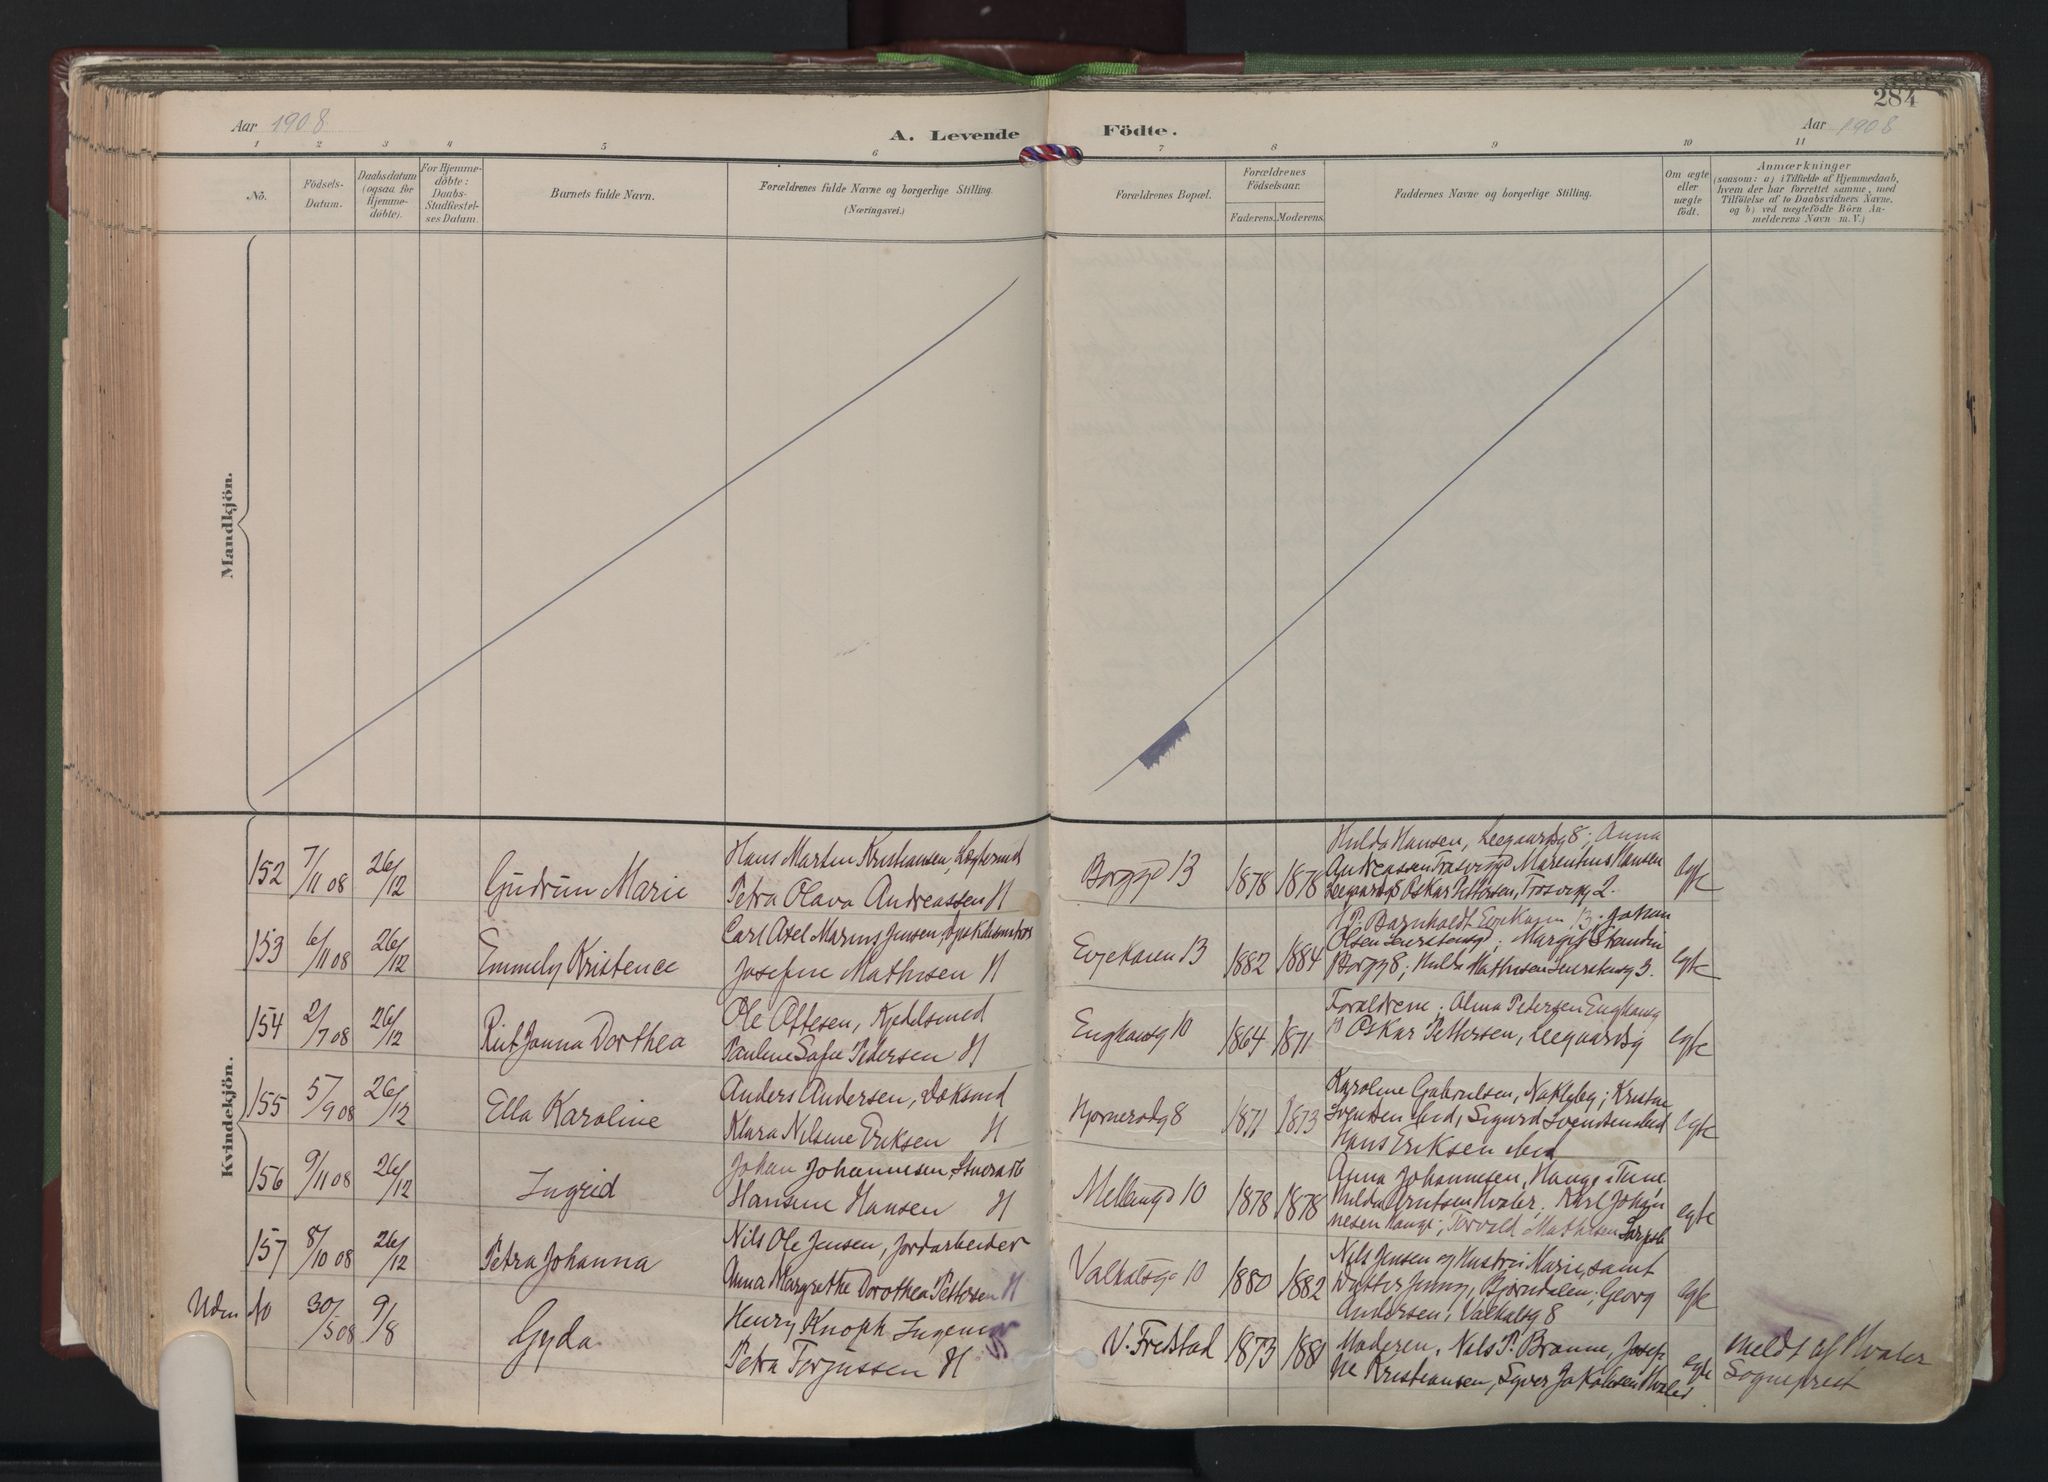 284
Aar 1908
A. Levende Födte.
Aar 1908
1 2 3 4 5 6 7 8 9 10 11
No.
Födsels-Datum.
Daabsdatum (ogsaa for Hjemmedöbte).
For Hjemmedöbte: Daabs-Stadfæstelses Datum.
Barnets fulde Navn.
Forældrenes fulde Navne og borgerlige Stilling.
(Næringsvei.)
Forældrenes Bopæl.
Forældrenes Födselsaar.
Faderens. Moderens.
Faddernes Navne og borgerlige Stilling.
Om ægte eller uægte födt.
Anmærkninger
(saasom: a) i Tilfælde af Hjemmedaab,
hvem der har forrettet samme, med
Tilföielse af to Daabsvidners Navne,
og b) ved uægtefödte Börn An-
melderens Navn m. V.)
Mandkjön.
Kvindekjön.
152 7/11 08 26/12 Gudrun Marie
Hans Martin Kristiansen,
Petra Olava Andreassen H
Borggd 13 1878 1878
Hulda Hansen, Leegaardsg 8; Anna
Andreassen Marentius Hansen
Oskar Pettersen, Trosvigg 2.
egte
153 6/11 08 26/12 Emmely Kristence
Carl Axel Marius Jensen,
Josefine Mathisen H
Evjekaien 13 1882 1884
Barnholdt Evjekaien 13; Johan
Olsen Margit
Borgg 8; Hulda Mathisen
egte
154 2/7 08 26/12 Rut Janna Dorthea
Ole Ottesen, Kjedelsmed
Pauline Sofie Pedersen H
Enghausg 10 1864 1871
Forældrene; Alma Petersen Enghausg
Oskar Pettersen, Leegaardsg
egte
155 5/9 08 26/12 Ella Karoline
Anders Andersen,
Klara Nilsine Eriksen H
8 1871 1873
Karoline Gabrielsen, Nakleby; Kristine
Svendsen ibid, Sigurd Svendsen ibid
Hans Eriksen ibid
egte
156 9/11 08 26/12 Ingrid
Johan Johannesen,
Hansine Hansen H
10 1878 1878
Anna Johannesen, Hauge i Tune
Hilda Arntsen Hvaler; Karl Johan
nesen Hauge; Torvald Mathisen
egte
157 8/10 08 26/12 Petra Johanna
Nils Ole Jensen, Jordarbeider
Anna Margrethe Dorothea Pettersen H
10 1880 1882
Nils Jensen og Hustru Marie, samt
Datter Jenny, Bjørndalen; Georg
Andersen, 8
egte
Uden No 30/5 08 9/8 Gyda
Henry Knoph Ingeniør
Petra Torjussen H
V. Fredstad 1873 1881
Moderen, Nils P. Brænne, Josef
ine Kristiansen, Syver Jakobsen Hvaler
egte
Meldt af Hvaler
Sogneprest